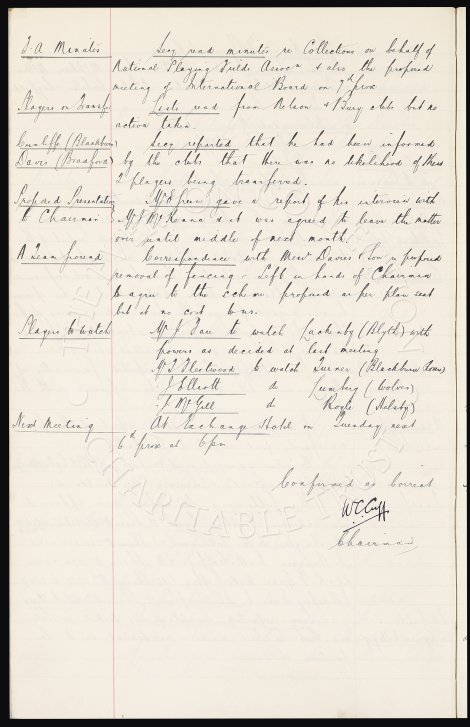 F.A Minutes Secy read minutes re Collections on behalf of
National Playing Fields Assocn & also the proposed
meeting of International Board on 9th prox
Players on Transfer Lists read from Nelson & Bury clubs but no
action taken.
Cunliffe (Blackburn) Secy reported that he had been informed
Davis (Bradford) by the clubs that there was no likelihood of these
2 players being transferred.
Proposed Presentation gave a report of his interview with
to Chairman Mr J McKenna & it was agreed to leave the matter
over until middle of next month.
A Team ground Correspondence with Messrs Davies & Son re proposed
removal of fencing - Left in hands of Chairman
to agree to the scheme proposed as per plan sent
but at no cost to us.
Players to watch Mr J to watch Lackenby (Blyth) with
powers as decided at last meeting
Mr T Fleetwood to watch Turner (Blackburn Rovers)
J Elliott do (Wolves)
J McGill do Royle (Helsby)
Next Meeting At Exchange Hotel on Tuesday next
6th prox at 6pm
Confirmed as Correct
W.C.Cuff
Chairman
CHARITABLE TRUST